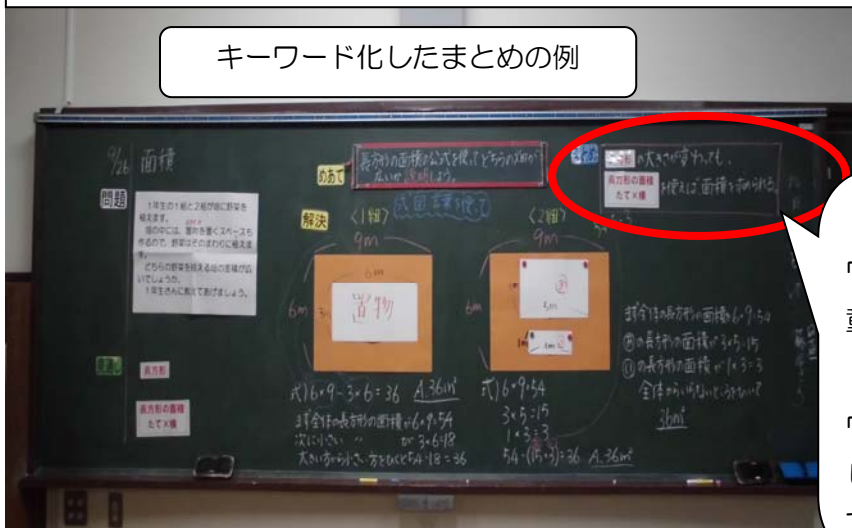 キーワード化したまとめの例
9/26 面積
問題
1年生の1組と2組が畑に野菜を
植えます。
畑の中には、置物を置くスペースも
作るので、野菜はそのまわりに植えま
す。
どちらの野菜を植える畑の面積が広
いでしょうか。
1年生さんに教えてあげましょう。
見通し
長方形
長方形の面積
たて×横
めあて
長方形の面積の公式を使ってどちらの畑が
広いか説明しよう。
解決
式図言葉を使って
〈1組〉
9m
6m
6m
3m
置物
式) 6×9-3×6=36 A.36m²
まず全体の長方形の面積が6×9=54
次に小さい 〃 が 3×6=18
大きい方から小さい方をひくと54-18=36
〈2組〉
9m
6m
あ
5m
1m
い
式) 6×9=54
3×5=15
1×3=3
54-(15+3)=36 A.36m²
まず全体の長方形の面積が6×9=54
あの長方形の面積が3×5=15
いの長方形の面積が1×3=3
全体からいらないところをひいて
36m²
まとめ
長方形の大きさが変わっても、
長方形の面積
たて×横
を使えば面積を求められる。